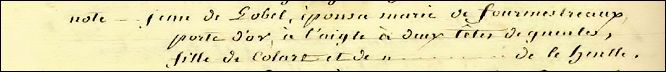 note — jean de Gobel, épousa marie de fourmestreaux
porte d'or, à l'aigle à deux têtes de gueules,
fille de Colart et de n .......... de le hentle.